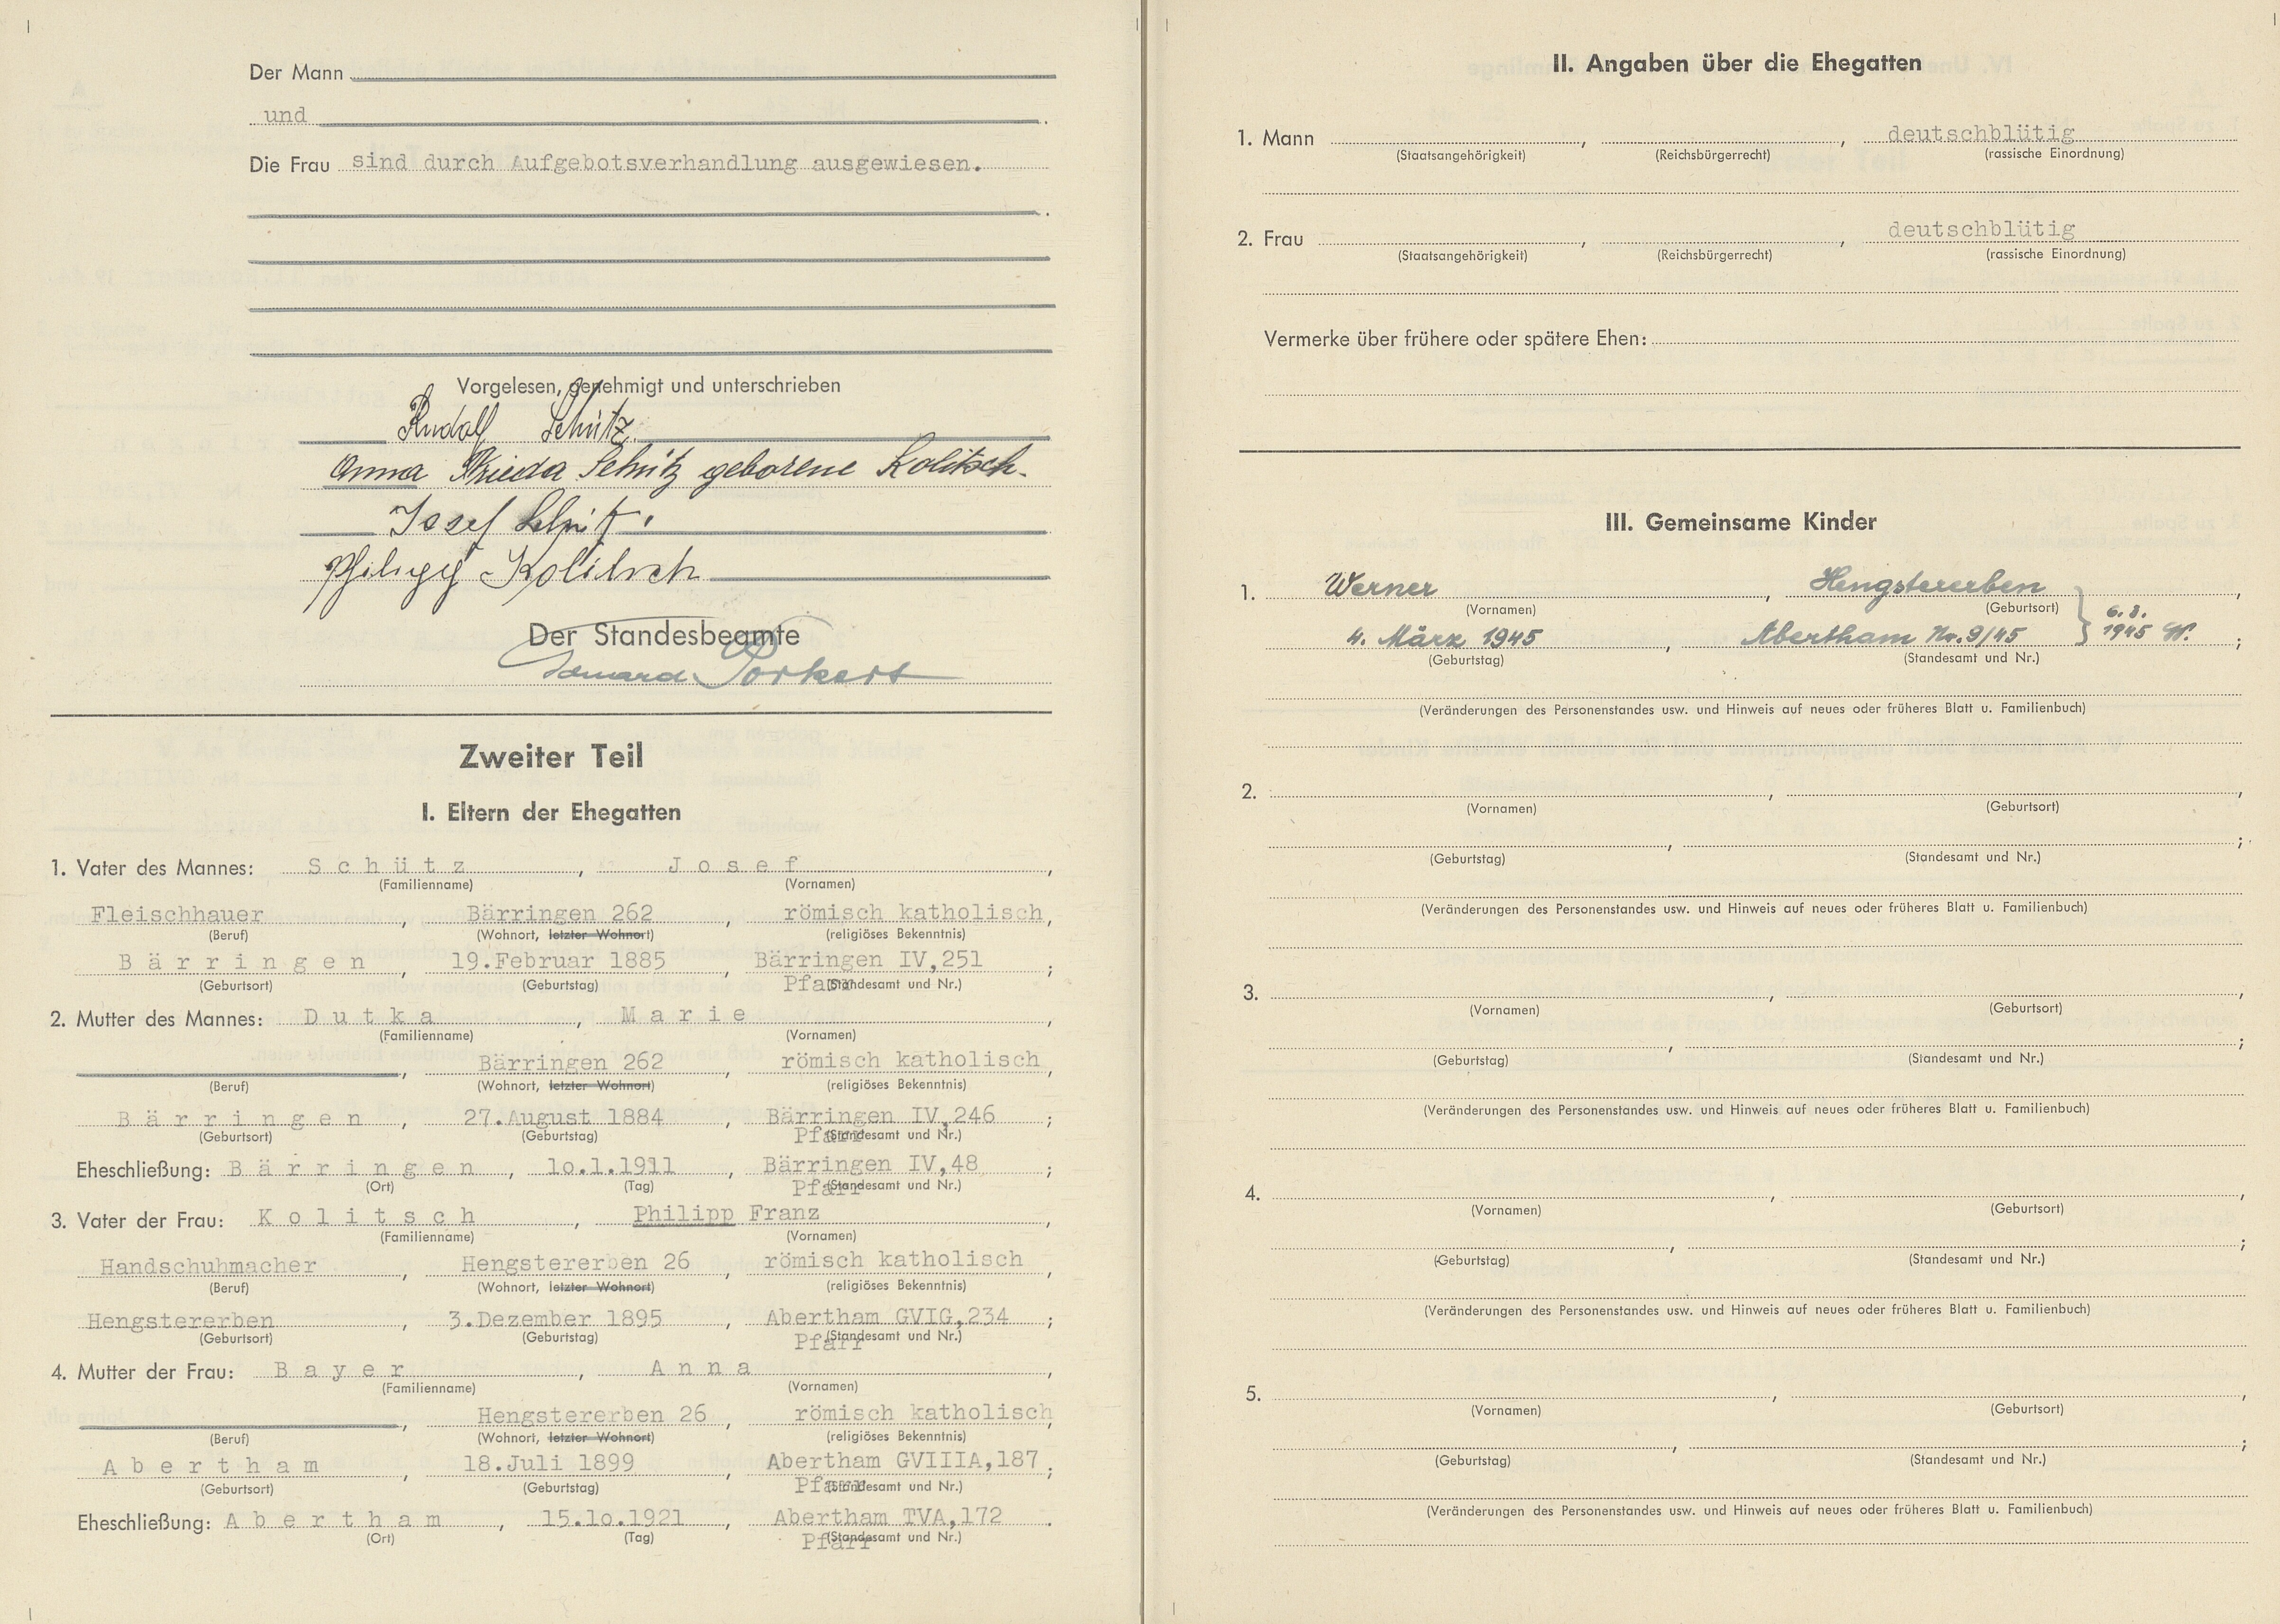 Der Mann
und
Die Frau sind durch Aufgebotsverhandlung ausgewiesen.
Vorgelesen, genehmigt und unterschrieben
Rudolf Schütz
Anna Frieda Schütz geborene Kolitsch
Josef Schütz
Philipp Kolitsch
Der Standesbeamte
Eduard Porkert
Zweiter Teil
I. Eltern der Ehegatten
1. Vater des Mannes: Schütz, Josef,
(Familienname) (Vornamen)
Fleischhauer, Bärringen 262, römisch katholisch,
(Beruf) (Wohnort, letzter Wohnort) (religiöses Bekenntnis)
Bärringen, 19.Februar 1885, Bärringen IV,251;
(Geburtsort) (Geburtstag) Pfarr (Standesamt und Nr.)
2. Mutter des Mannes: Dutka, Marie,
(Familienname) (Vornamen)
, Bärringen 262, römisch katholisch,
(Beruf) (Wohnort, letzter Wohnort) (religiöses Bekenntnis)
Bärringen, 27.August 1884, Bärringen IV,246;
(Geburtsort) (Geburtstag) Pfarr (Standesamt und Nr.)
Eheschließung: Bärringen, 1o.1.1911, Bärringen IV,48;
(Ort) (Tag) Pfarr (Standesamt und Nr.)
3. Vater der Frau: Kolitsch, Philipp Franz,
(Familienname) (Vornamen)
Handschuhmacher, Hengstererben 26, römisch katholisch,
(Beruf) (Wohnort, letzter Wohnort) (religiöses Bekenntnis)
Hengstererben, 3.Dezember 1895, Abertham GVIG,234;
(Geburtsort) (Geburtstag) Pfarr (Standesamt und Nr.)
4. Mutter der Frau: Bayer, Anna,
(Familienname) (Vornamen)
, Hengstererben 26, römisch katholisch,
(Beruf) (Wohnort, letzter Wohnort) (religiöses Bekenntnis)
Abertham, 18.Juli 1899, Abertham GVIIIA,187;
(Geburtsort) (Geburtstag) Pfarr (Standesamt und Nr.)
Eheschließung: Abertham, 15.1o.1921, Abertham TVA,172.
(Ort) (Tag) Pfarr (Standesamt und Nr.)
II. Angaben über die Ehegatten
1. Mann , , deutschblütig
(Staatsangehörigkeit) (Reichsbürgerrecht) (rassische Einordnung)
2. Frau , , deutschblütig
(Staatsangehörigkeit) (Reichsbürgerrecht) (rassische Einordnung)
Vermerke über frühere oder spätere Ehen:
III. Gemeinsame Kinder
1. Werner, Hengstererben,
(Vornamen) (Geburtsort) 6.8.
4. März 1945, Abertham Nr.9/45 1945;
(Geburtstag) (Standesamt und Nr.)
(Veränderungen des Personenstandes usw. und Hinweis auf neues oder früheres Blatt u. Familienbuch)
2. , ,
(Vornamen) (Geburtsort)
, ;
(Geburtstag) (Standesamt und Nr.)
(Veränderungen des Personenstandes usw. und Hinweis auf neues oder früheres Blatt u. Familienbuch)
3. , ,
(Vornamen) (Geburtsort)
, ;
(Geburtstag) (Standesamt und Nr.)
(Veränderungen des Personenstandes usw. und Hinweis auf neues oder früheres Blatt u. Familienbuch)
4. , ,
(Vornamen) (Geburtsort)
, ;
(Geburtstag) (Standesamt und Nr.)
(Veränderungen des Personenstandes usw. und Hinweis auf neues oder früheres Blatt u. Familienbuch)
5. , ,
(Vornamen) (Geburtsort)
, ;
(Geburtstag) (Standesamt und Nr.)
(Veränderungen des Personenstandes usw. und Hinweis auf neues oder früheres Blatt u. Familienbuch)